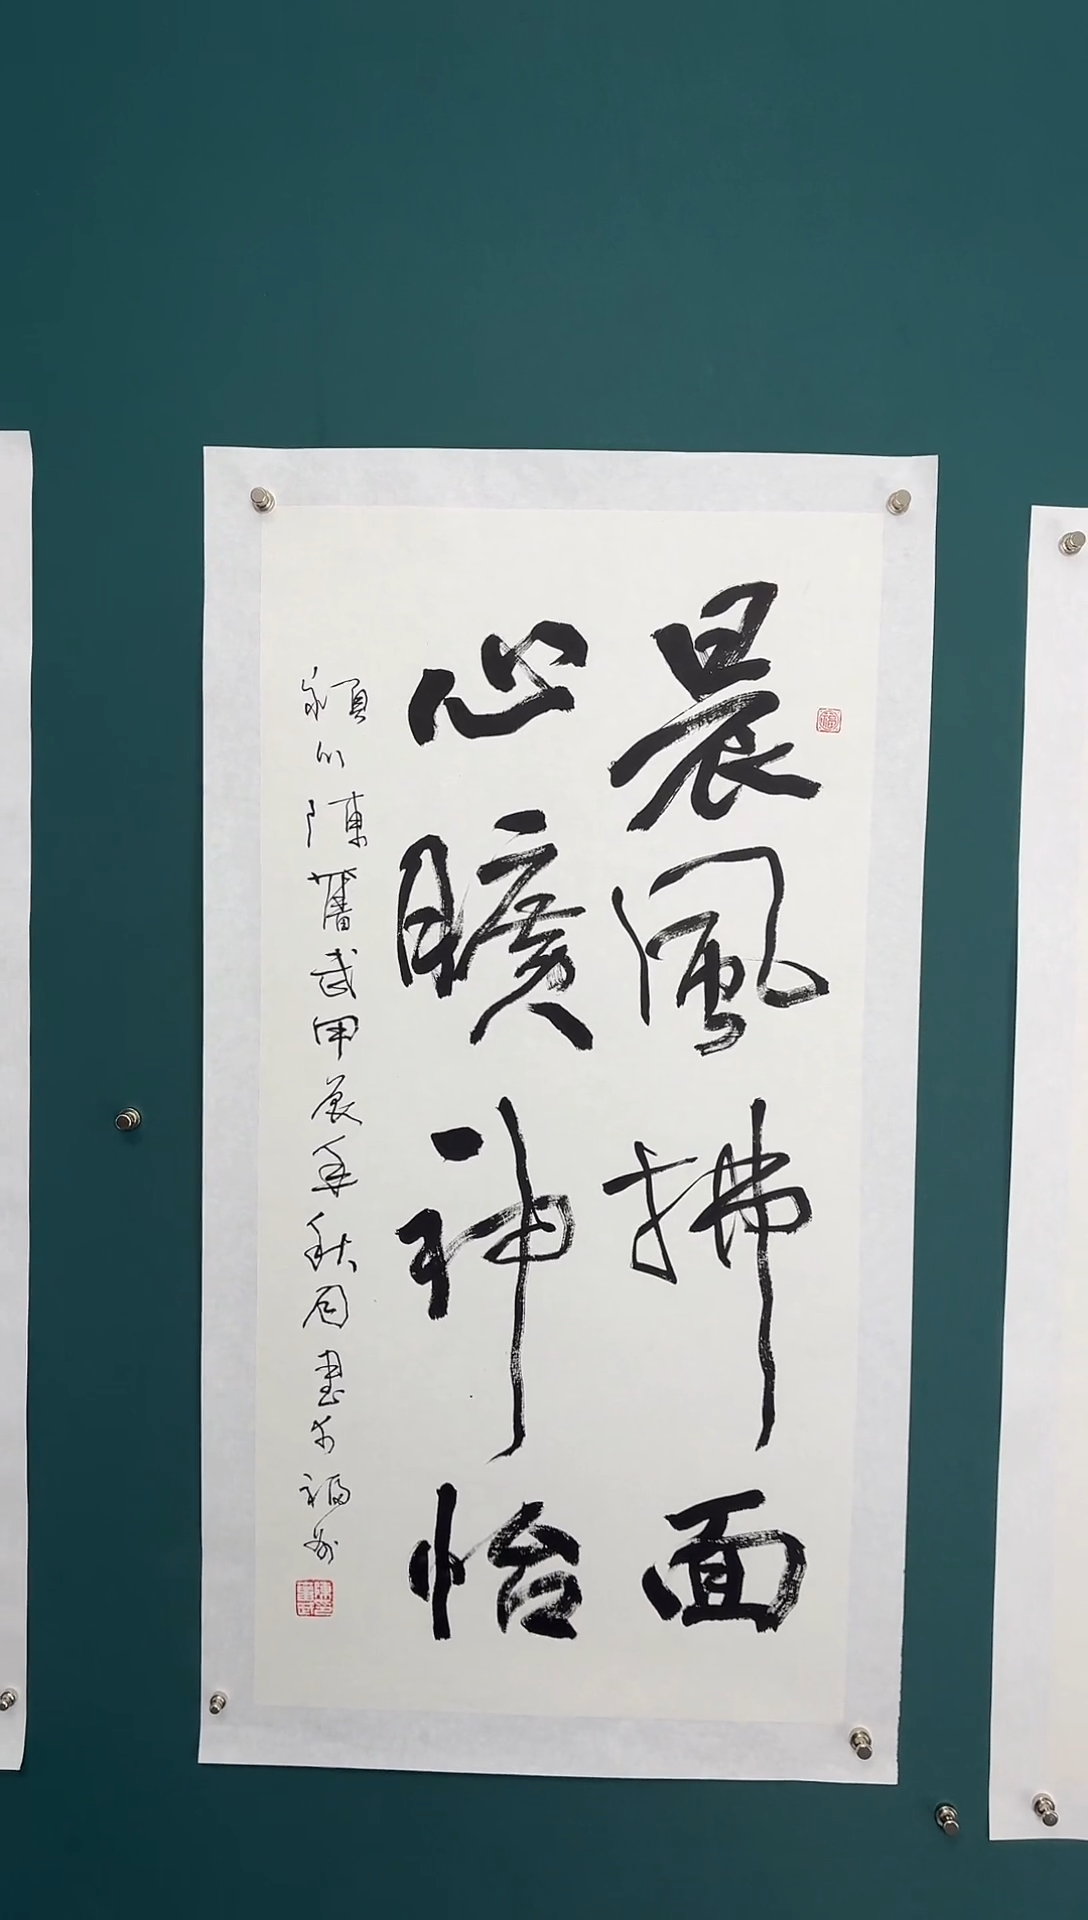 晨風拂面
心曠神怡
潁川陳舊武甲辰年秋月書於福州